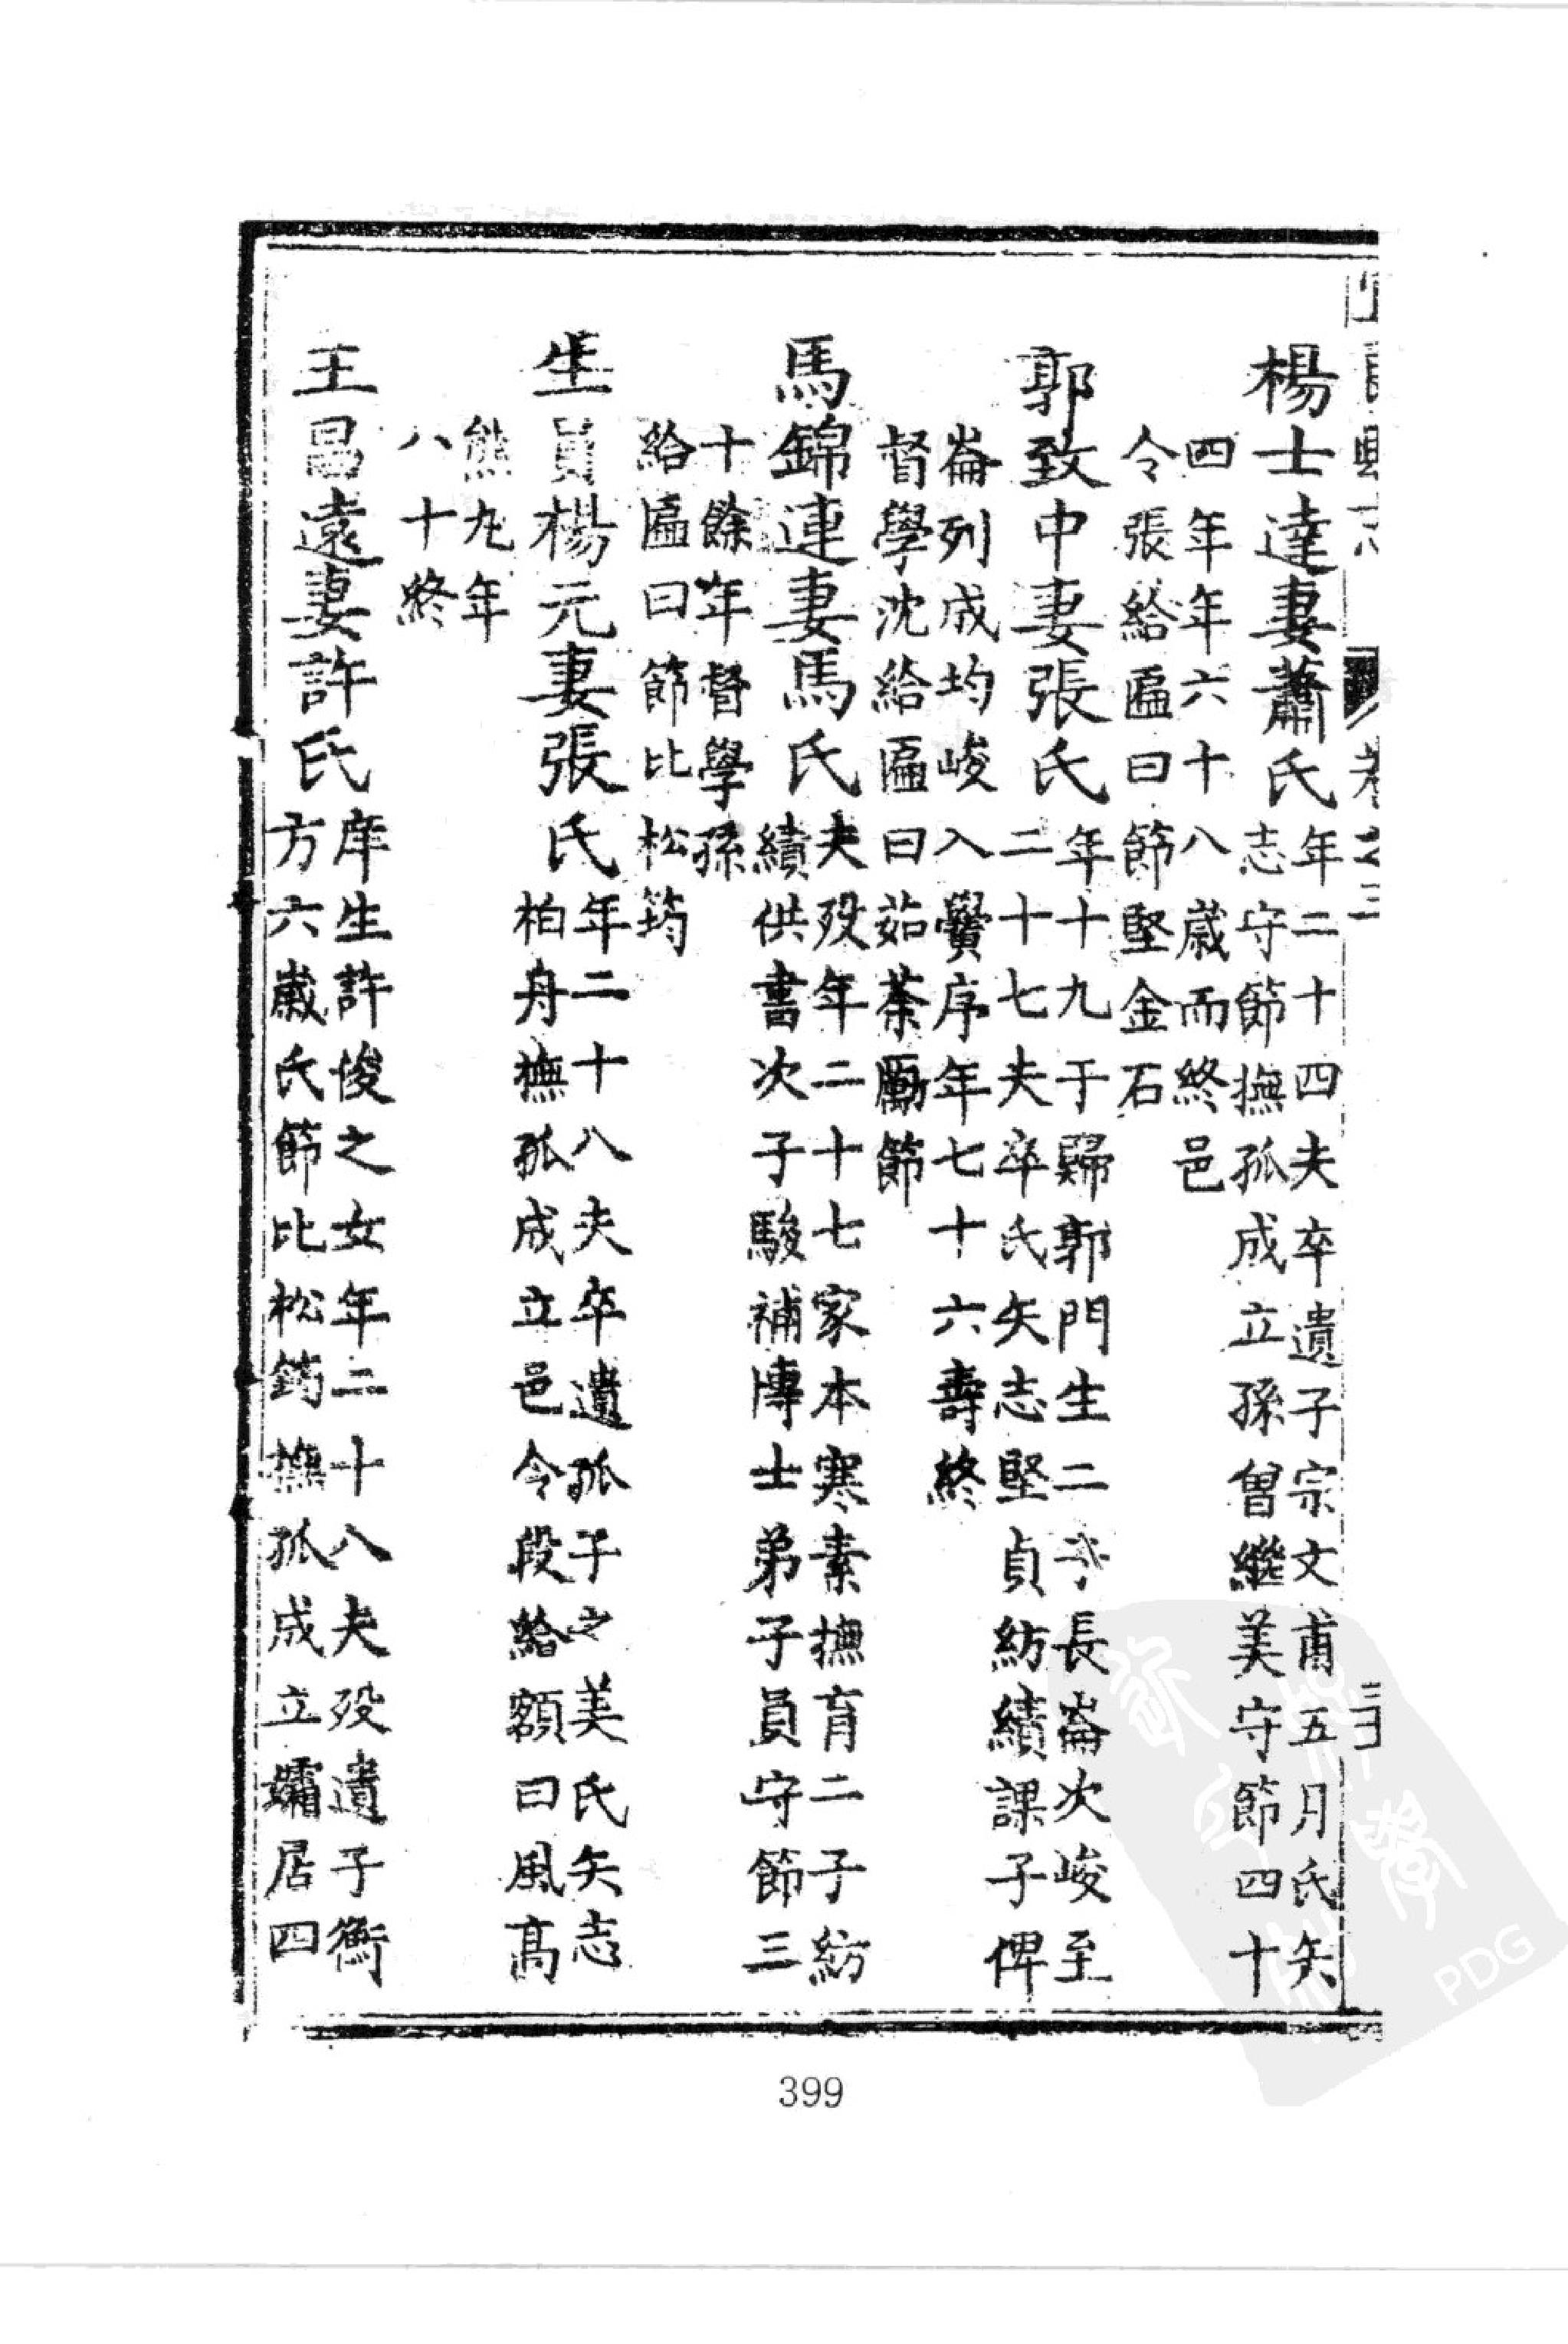 卷之三
楊士達妻蕭氏年二十四夫卒遺子宗文甫五月氏矢
志守節撫孤成立孫曾繼美守節四十
四年年六十八歲而終邑
令張給匾曰節堅金石
郭致中妻張氏年十九于歸郭門生二子長崙次峻至
二十七夫卒氏矢志堅貞紡績課子俾
崙列成均峻入黌序年七十六壽終
督學沈給匾曰茹荼勵節
馬錦連妻馬氏夫歿年二十七家本寒素撫育二子紡
績供書次子駿補博士弟子員守節三
十餘年督學孫
給匾曰節比松筠
生員楊元妻張氏年二十八夫卒遺孤子之美氏矢志
柏舟撫孤成立邑令段給額曰風高
熊九年
八十終
王昌遠妻許氏庠生許俊之女年二十八夫歿遺子衡
方六歲氏節比松筠撫孤成立孀居四
399
PDG